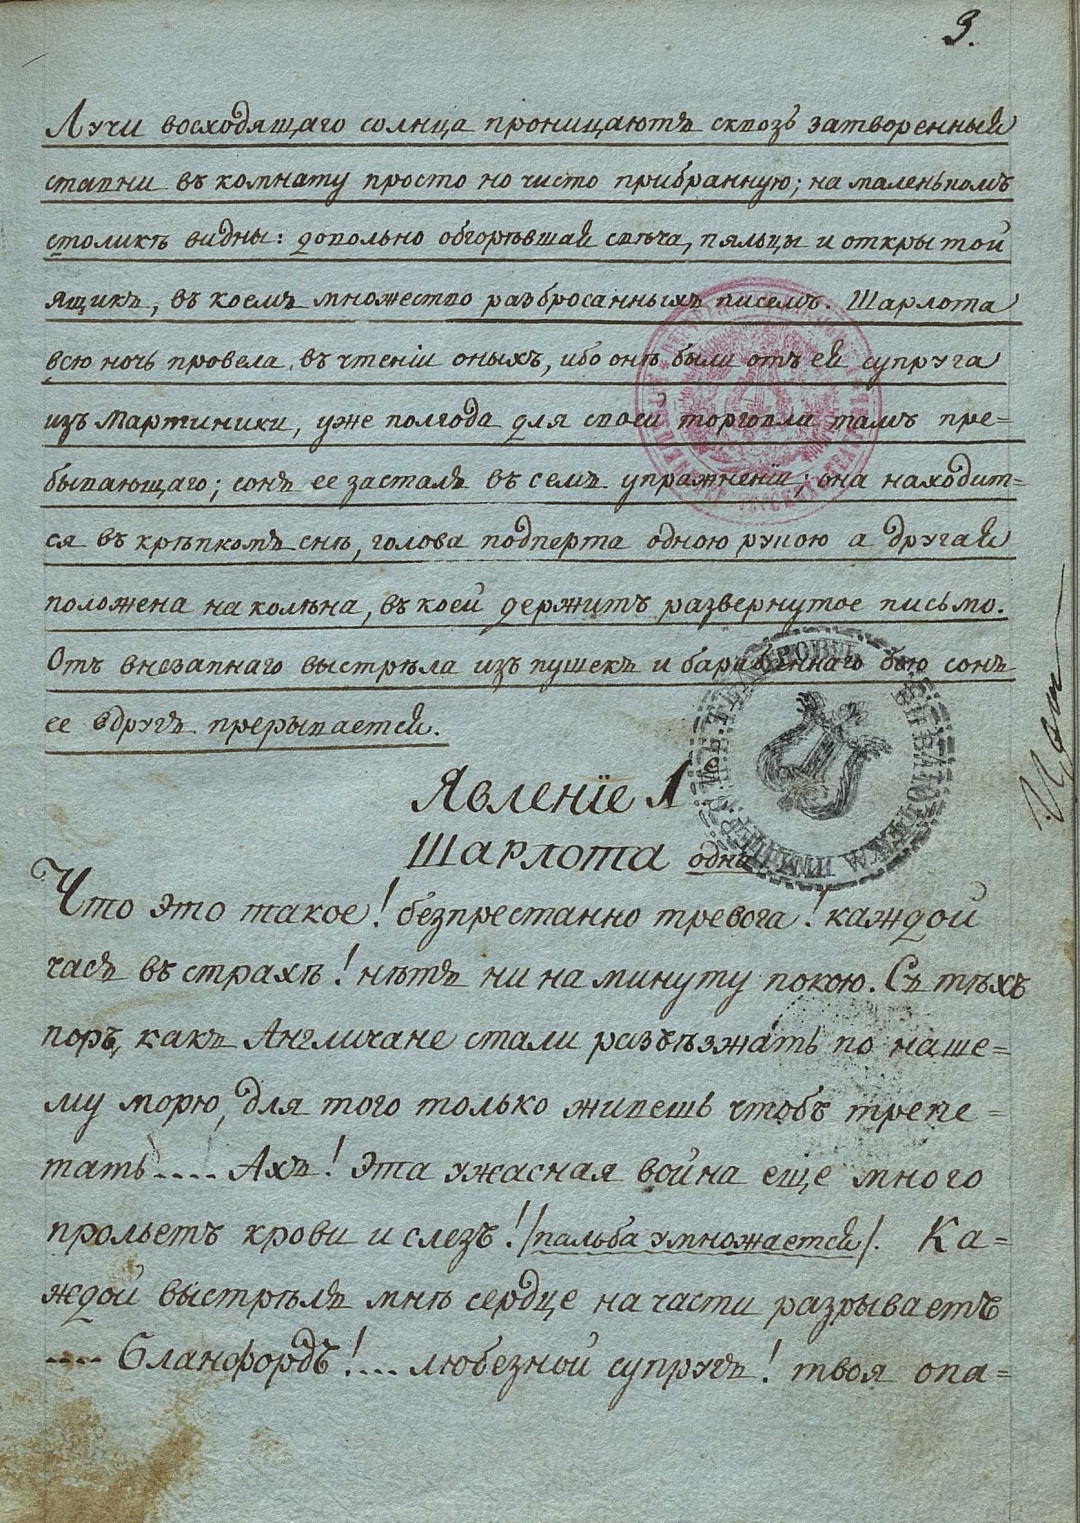 3.
Лучи восходящаго солнца проницаютъ сквозь затворенныя
ставни въ комнату просто но чисто прибранную; на маленькомъ
столикѣ видны: довольно обгорѣвшая свѣча, пяльцы и открытой
ящикъ, въ коемъ множество разбросанныхъ писемъ. Шарлота
всю ночь провела въ чтеніи оныхъ, ибо онѣ были отъ ея супруга
изъ Мартиники, уже полгода для своей торговли тамъ пре=
бывающаго; сонъ ее засталъ въ семъ упражненіи; она находит=
ся въ крѣпкомъ снѣ, голова подперта одною рукою а другая
положена на колѣна, въ коей держитъ развернутое письмо.
Отъ внезапнаго выстрѣла изъ пушекъ и барабаннаго бою сонъ
ее вдругъ прерывается.
Явленіе 1е
Шарлота одна
Что это такое! безпрестанно тревога! каждой
часъ въ страхѣ! нѣтъ ни на минуту покою. Съ тѣхъ
поръ, какъ Англичане стали разъѣзжать по наше=
му морю, для того только живешь чтобъ трепе=
тать.... Ахъ! эта ужасная война еще много
прольетъ крови и слезъ! /пальба умножается/. Ка=
ждой выстрѣлъ мнѣ сердце на части разрываетъ
.... Бланфордъ!... любезной супругъ! твоя опа=
БИБЛИОТЕКА ИМПЕР. С.П.Б. ТЕАТРОВЪ